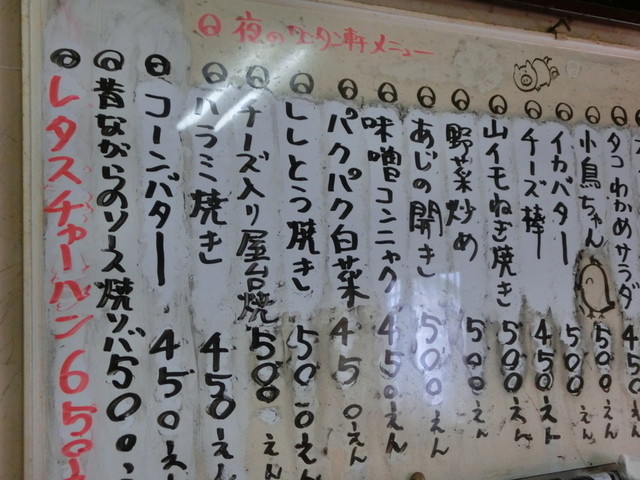 夜のワンタン軒メニュー
タコわかめサラダ 450えん
小鳥ちゃん 500えん
イカバター 500えん
チーズ棒 450えん
山イモねぎ焼き 500えん
野菜炒め 500えん
あじの開き 500えん
味噌コンニャク 450えん
パクパク白菜 450えん
ししとう焼き 500えん
チーズ入り屋台焼 500えん
ハラミ焼き 450えん
コーンバター 450えん
昔ながらのソース焼ソバ 500
レタスチャーハン 650